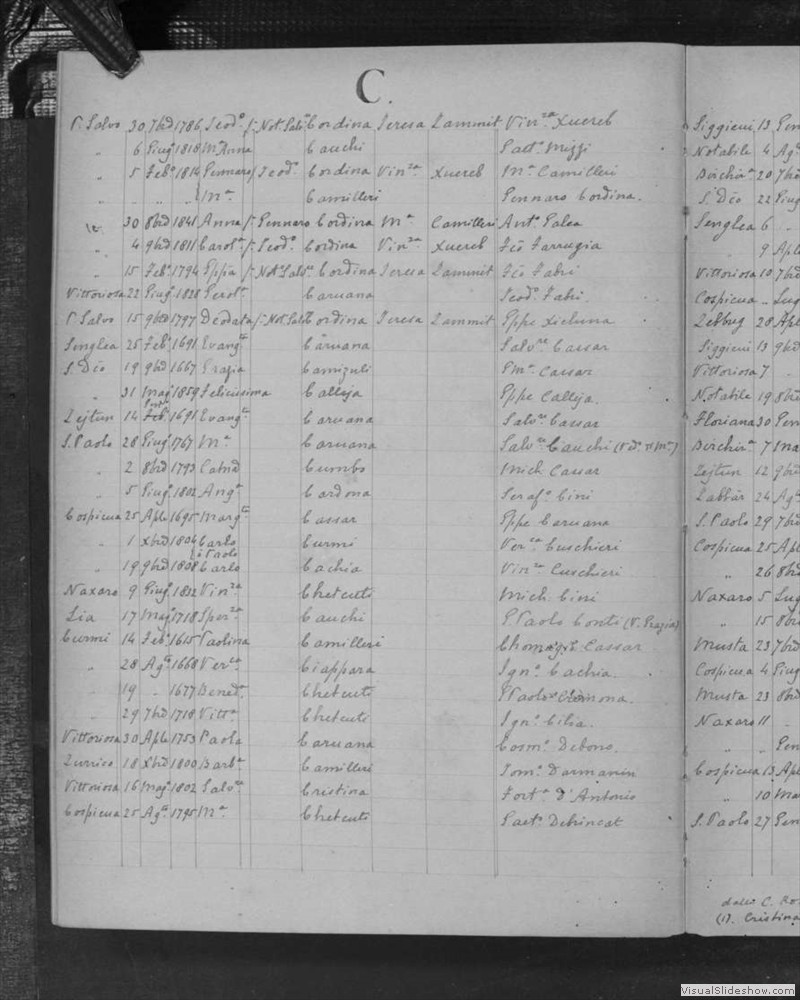 C.
P. Salvo 30 7brĕ 1786 Teodº f. Not. Salvº Cordina Teresa Zammit Vinᶻᵃ Xuereb
„ 6 Giugº 1818 Mª Anna Cauchi Gaetº Mizzi
„ 5 Febº 1814 Gennaro f. Teodº Cordina Vinᶻᵃ Xuereb Mª Camilleri
„ „ „ Mª Camilleri Gennaro Cordina.
„ 30 8brĕ 1841 Anna f. Gennaro Cordina Mª Camilleri Antº Galea
„ 4 9brĕ 1811 Carolª f. Teodº Cordina Vinᶻᵃ Xuereb Feo Farrugia
„ 15 Febº 1794 Gppa f. Not. Salvº Cordina Teresa Zammit Feo Fabri
Vittoriosa 22 Giugº 1828 Gerolª Caruana Teodº Fabri.
P. Salvo 15 9brĕ 1797 Deodata f. Not. Salvº Cordina Teresa Zammit Gppe Xicluna
Senglea 25 Febº 1691 Evangᵗᵃ Caruana Salvʳᵉ Cassar
S. Dĉo 19 9brĕ 1667 Grazia Camizuli Gmª Cassar
„ 31 Magº 1859 Felicissima Calleja Gppe Calleja.
Zejtun 14 Febº 1691 Evangᵗᵃ Caruana Salvʳᵉ Cassar
S. Paolo 28 Giugº 1767 Mª Caruana Salvʳᵉ Cauchi (Vdº di Mª)
„ 2 8brĕ 1793 Catnª Cumbo Mich. Cassar
„ 5 Giugº 1802 Angª Cardona Serafº Cini
Cospicua 25 Aple 1695 Margᵗᵃ Cassar Gppe Caruana
„ 1 Xbrĕ 1804 Carlo Curmi Verᶜᵃ Cuschieri
è Paolo
„ 19 9brĕ 1808 Carlo Cachia Vinᶻᵃ Cuschieri
Naxaro 9 Giugº 1832 Vinᶻᵃ Chetcuti Mich. Cini
Lia 17 Magº 1718 Sperᶻᵃ Cauchi P. Paolo Conti (V. Grazia)
Curmi 14 Febº 1615 Paolina Camilleri Cassar
„ 28 Agº 1668 Verᶜᵃ Ciappara Ignº Cachia.
„ 19 „ 1677 Benedª Chetcuti P. Paolo Cremona.
„ 29 7brĕ 1718 Vittª Chetcuti Ignº Cilia.
Vittoriosa 30 Aple 1753 Paola Caruana Cosmº Debono.
Zurrico 18 Xbrĕ 1800 Barbª Camilleri Tomº Darmanin
Vittoriosa 16 Magº 1802 Salvʳᵃ Cristina Fortª d'Antonio
Cospicua 25 Agº 1795 Mª Chetcuti Gaetº Debrincat
Siggieui 13 Gen
Notabile 4 Agº
Birchirª 20 7brĕ
S. Dĉo 22 Giug
Senglea 6 „
„ 9 Aple
Vittoriosa 10 7brĕ
Cospicua „ Lug
Zebbug 28 Apl
Siggieui 13 9brĕ
Vittoriosa 7 „
Notabile 19 8brĕ
Floriana 30 Gen
Birchirª 7 Ma
Zejtun 12 9brĕ
Zabbar 24 Agº
S. Paolo 29 7brĕ
Cospicua 25 Apl
„ 26 8brĕ
Naxaro 5 Lug
„ 15 8brĕ
Musta 23 7brĕ
Cospicua 4 Giug
Musta 23 8brĕ
Naxaro 11 „
„ „ Gen
Cospicua 13 Apl
„ 10 Ma
S. Paolo 27 Gen
dalle C. Ro
(1). Cristina
VisualSlideshow.com